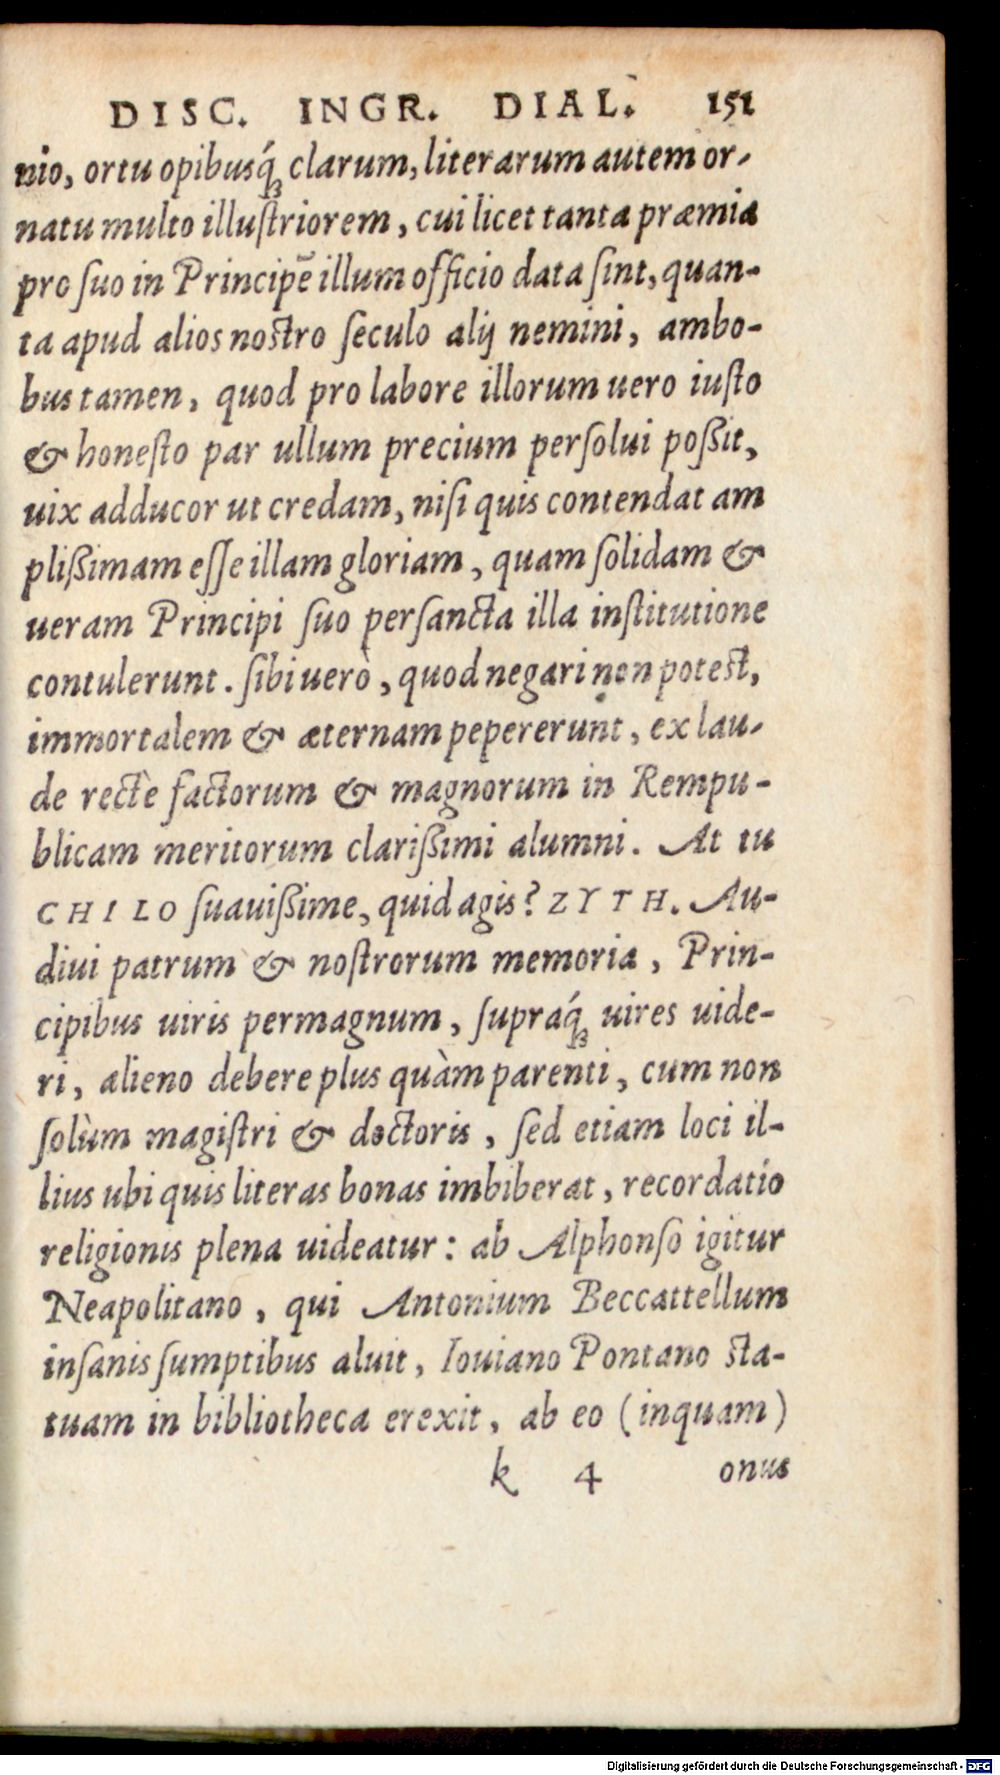 DISC. INGR. DIAL. 151
nio, ortu opibusq́ꝫ clarum, literarum autem or-
natu multo illuſtriorem, cui licet tanta præmia
pro ſuo in Principẽ illum officio data ſint, quan-
ta apud alios noſtro ſeculo alij nemini, ambo-
bus tamen, quod pro labore illorum uero iuſto
& honeſto par ullum precium perſolui poßit,
uix adducor ut credam, niſi quis contendat am
plißimam eſſe illam gloriam, quam ſolidam &
ueram Principi ſuo perſancta illa inſtitutione
contulerunt. ſibi uerò, quod negari non poteſt,
immortalem & æternam pepererunt, ex lau-
de rectè factorum & magnorum in Rempu-
blicam meritorum clarißimi alumni. At tu
CHILO ſuauißime, quid agis? ZYTH. Au-
diui patrum & noſtrorum memoria, Prin-
cipibus uiris permagnum, ſupraq́ꝫ uires uide-
ri, alieno debere plus quàm parenti, cum non
ſolùm magiſtri & doctoris, ſed etiam loci il-
lius ubi quis literas bonas imbiberat, recordatio
religionis plena uideatur: ab Alphonſo igitur
Neapolitano, qui Antonium Beccattellum
inſanis ſumptibus aluit, Iouiano Pontano ſta-
tuam in bibliotheca erexit, ab eo (inquam)
k 4 onus
Digitalisierung gefördert durch die Deutsche Forschungsgemeinschaft - DFG